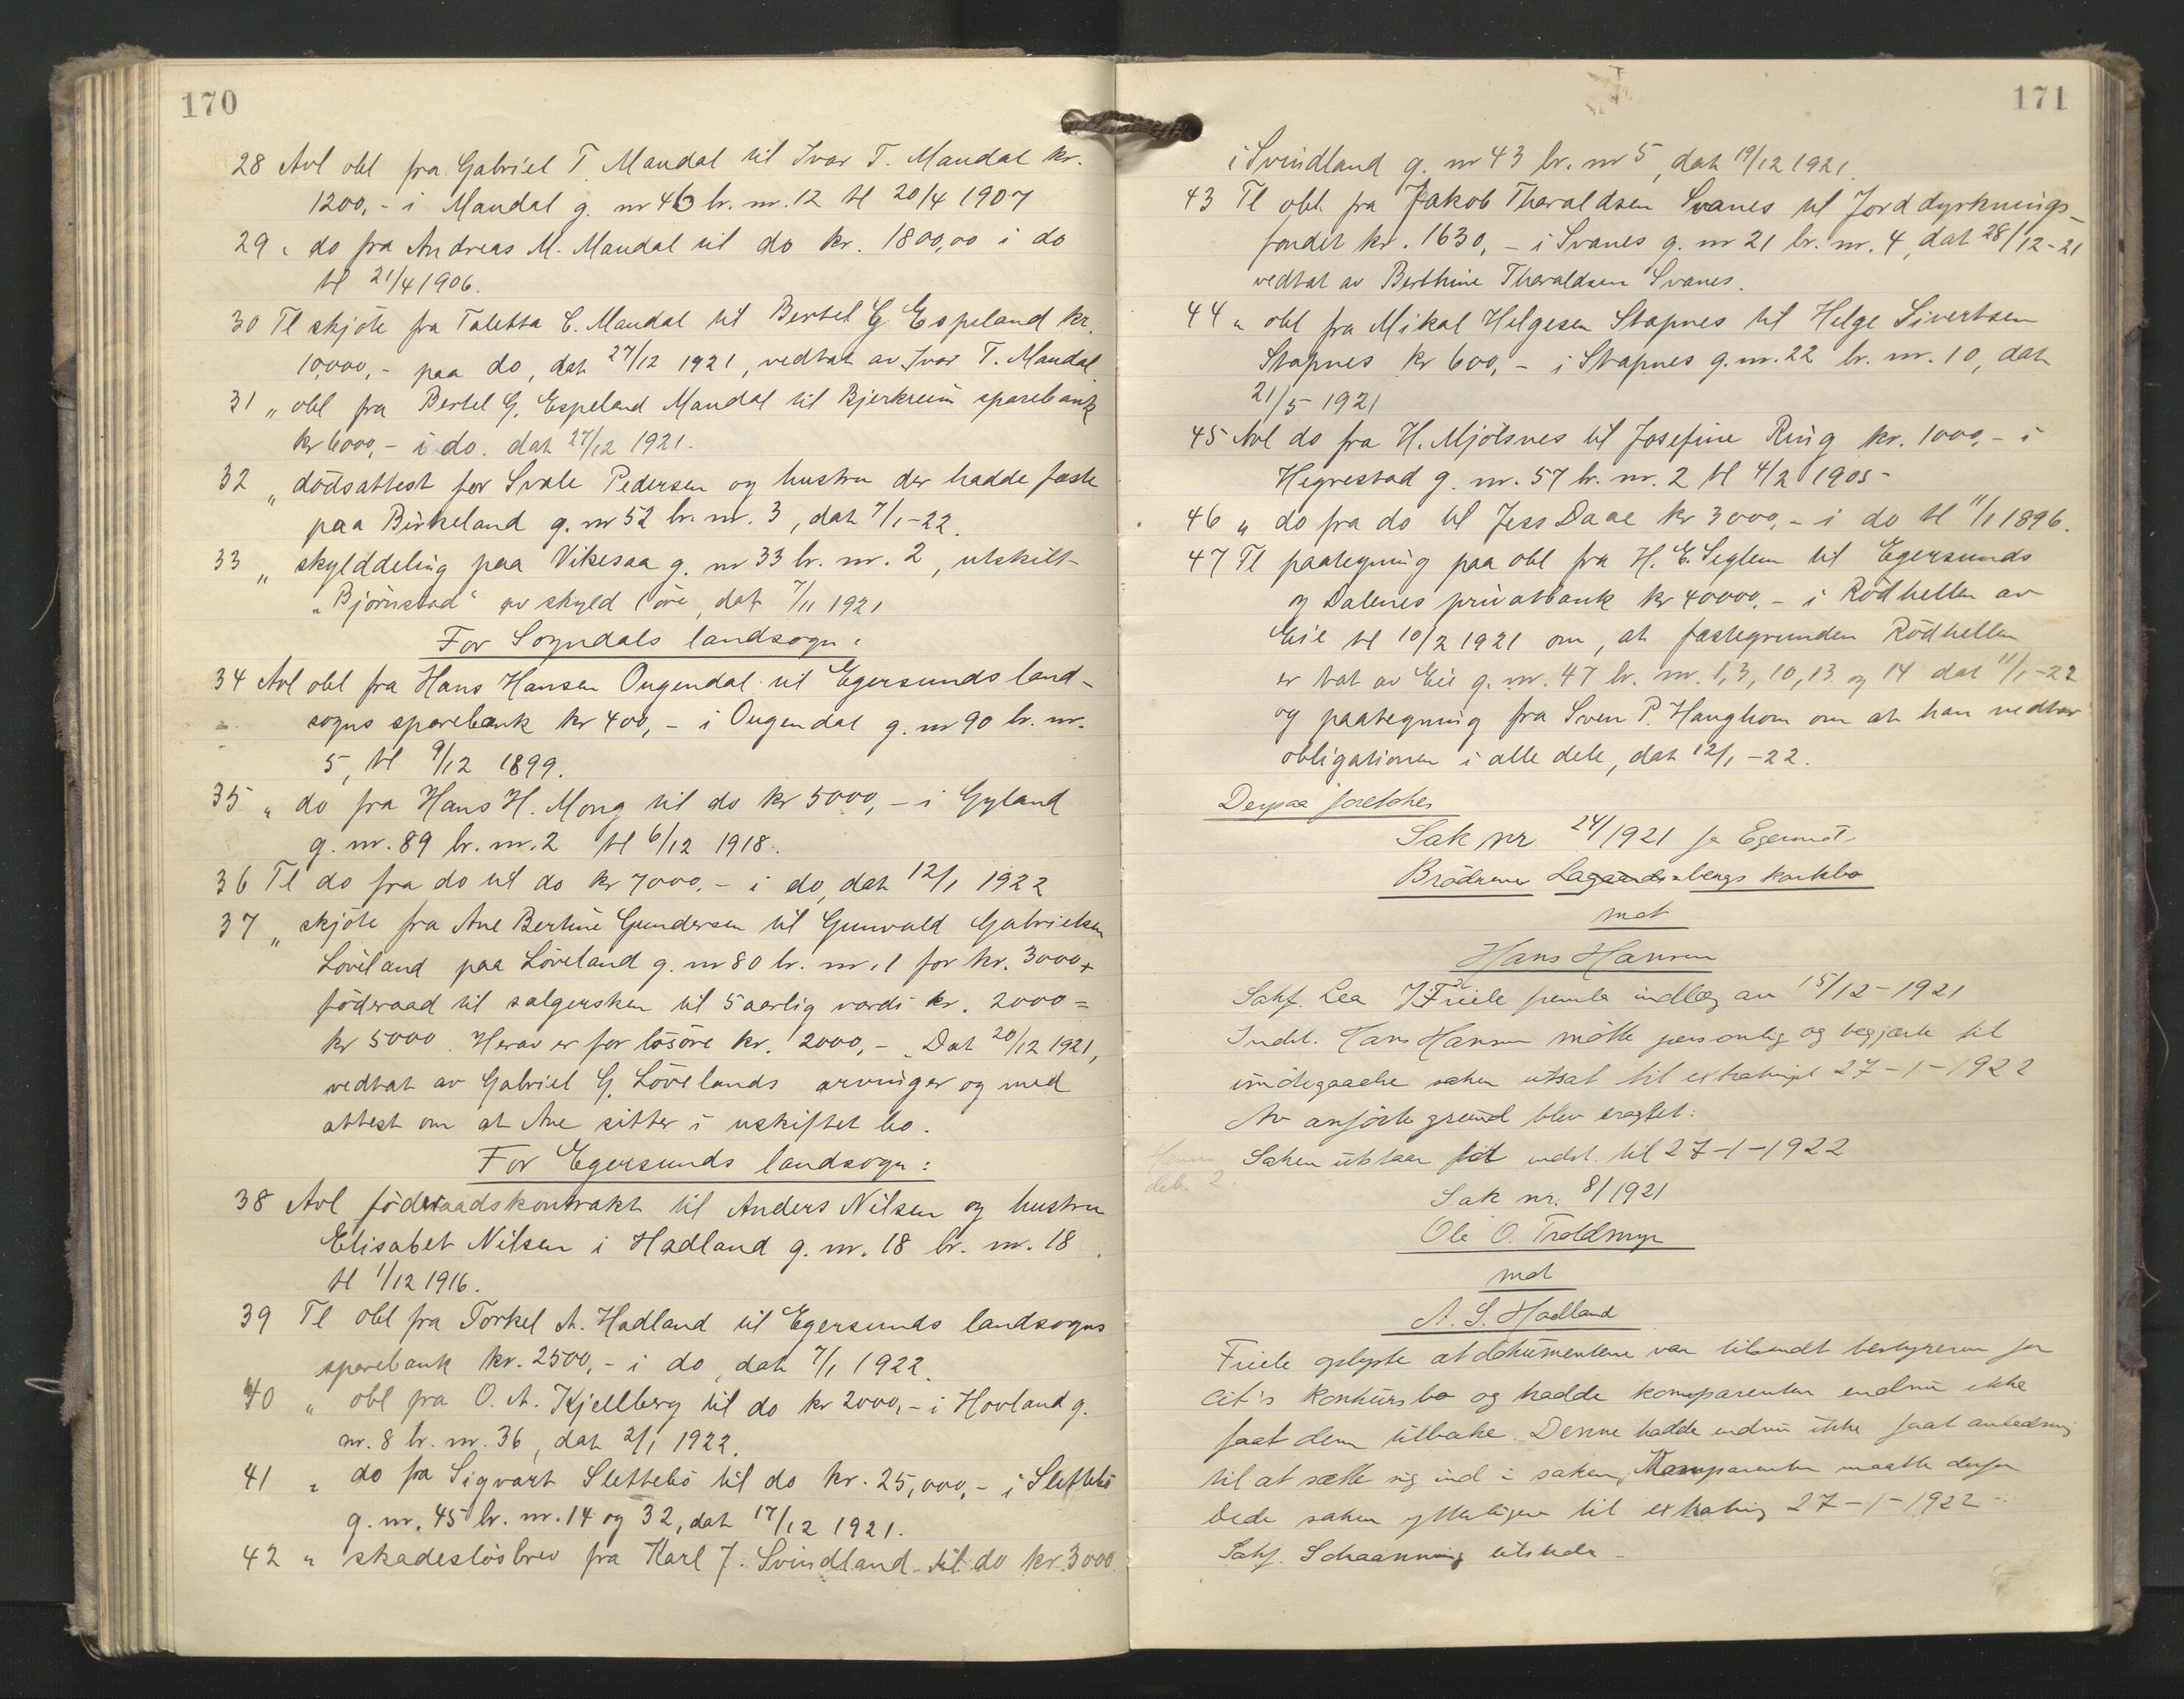 170
28 Avl obl fra Gabriel T. Mandal til Ivar T. Mandal kr.
1200,- i Mandal g. nr 46 br. nr. 12 tl 20/4 1907
29 " do fra Andreas M. Mandal til do kr. 1800,00 i do
tl 21/4 1906.
30 Tl skjöte fra Taletta C. Mandal til Bertel G Espeland kr.
10,000,- paa do, dat 27/12 1921, vedtat av Ivar T. Mandal.
31 " obl fra Bertel G. Espeland Mandal til Bjerkreim sparebank
kr 6000,- i do. dat 27/12 1921.
32 " dödsattest for Svale Pedersen og hustru der hadde fæste
paa Birkeland g. nr 52 br. nr. 3, dat 7/1-22.
33 " skylddeling paa Vikesaa g. nr 33 br. nr. 2, utskilt
"Björnstad" av skyld 1 öre, dat 7/11 1921
For Sogndals landsogn:
34 Avl obl fra Hans Hansen Ougendal til Egersunds land-
sogns sparebank kr 400,- i Ougendal g. nr 90 br. nr.
5, tl 9/12 1899.
35 " do fra Hans H. Mong til do kr 5000,- i Gyland
g. nr. 89 br. nr. 2 tl 6/12 1918.
36 Tl do fra do til do kr 7000,- i do, dat 12/1 1922
37 " skjöte fra Ane Bertine Gundersen til Gunvald Gabrielsen
Löveland paa Löveland g. nr 80 br. nr. 1 for kr. 3000 +
föderaad til sælgersken til 5 aarlig værdi kr. 2000 =
kr 5000. Herav er for lösöre kr. 2000,-. Dat 20/12 1921,
vedtat av Gabriel G. Lövelands arvinger og med
attest om at Ane sitter i uskiftet bo.
For Egersunds landsogn:
38 Avl föderaadskontrakt til Anders Nilsen og hustru
Elisabet Nilsen i Hadland g. nr. 18 br. nr. 18.
tl 1/12 1916.
39 Tl obl fra Torkel A. Hadland til Egersunds landsogns
sparebank kr. 2500,- i do, dat 7/1 1922.
40 " obl fra O. A. Kjellberg til do kr 2000,- i Hovland g.
nr. 8 br. nr. 36, dat 2/1 1922.
41 " do fra Sigvart Slettebö til do kr. 25,000,- i Slettebö
g. nr. 45 br. nr. 14 og 32, dat 17/12 1921.
42 " skadeslösbrev fra Karl J. Svindland til do kr. 3000
171
i Svindland g. nr 43 br. nr 5, dat 19/12 1921.
43 Tl obl fra Jakob Theraldsen Svanes til Jorddyrknings-
fondet kr. 1630,- i Svanes g. nr 21 br. nr. 4, dat 28/12-21
vedtat av Berthine Theraldsen Svanes.
44 " obl fra Mikal Helgesen Stapnes til Helge Sivertsen
Stapnes kr 600,- i Stapnes g. nr. 22 br. nr. 10, dat
21/5 1921
45 Avl do fra H. Mjölsnes til Josefine Ring kr. 1000,- i
Hegrestad g. nr. 57 br. nr. 2 tl 4/2 1905-
46 " do fra do til Jess Daae kr 3000,- i do tl 11/1 1896.
47 Tl paategning paa obl fra H. E. Seglem til Egersunds
og Dalenes privatbank kr 40000,- i Rödhellen av
Eie tl 10/2 1921 om, at fæstegrunden Rödhellen
er tat av Eie g. nr. 47 br. nr. 1, 3, 10, 13 og 14 dat 11/1-22
og paategning fra Sven P. Haughom om at han vedtar
obligationen i alle dele, dat 12/1-22.
Derpaa foretokes
Sak nr. 24/1921 fr Egersund
Brödrene bergs konkbo
mot
Hans Hansen
Sakf. Lea f Friele fremla indlæg av 15/12-1921
Indst. Hans Hansen mötte personlig og begjærte til
imötegaaelse saken utsat til extrating 27-1-1922
Av anförte grund blev eragtet:
Saken utstaar til indst. til 27-1-1922
Hansen
deb. 2.
Sak nr. 8/1921
Ole O. Troldmyr
mot
A. S. Hadland
Friele oplyste at dokumentene var tilsendt bestyreren for
cit's konkursbo og hadde komparenten endnu ikke
faat dem tilbake. Denne hadde endnu ikke faat anledning
til at sætte sig ind i saken, Komparenten maatte derfor
bede saken ytterligere til extrating 27-1-1922-
Sakf. Schaanning tilstede-